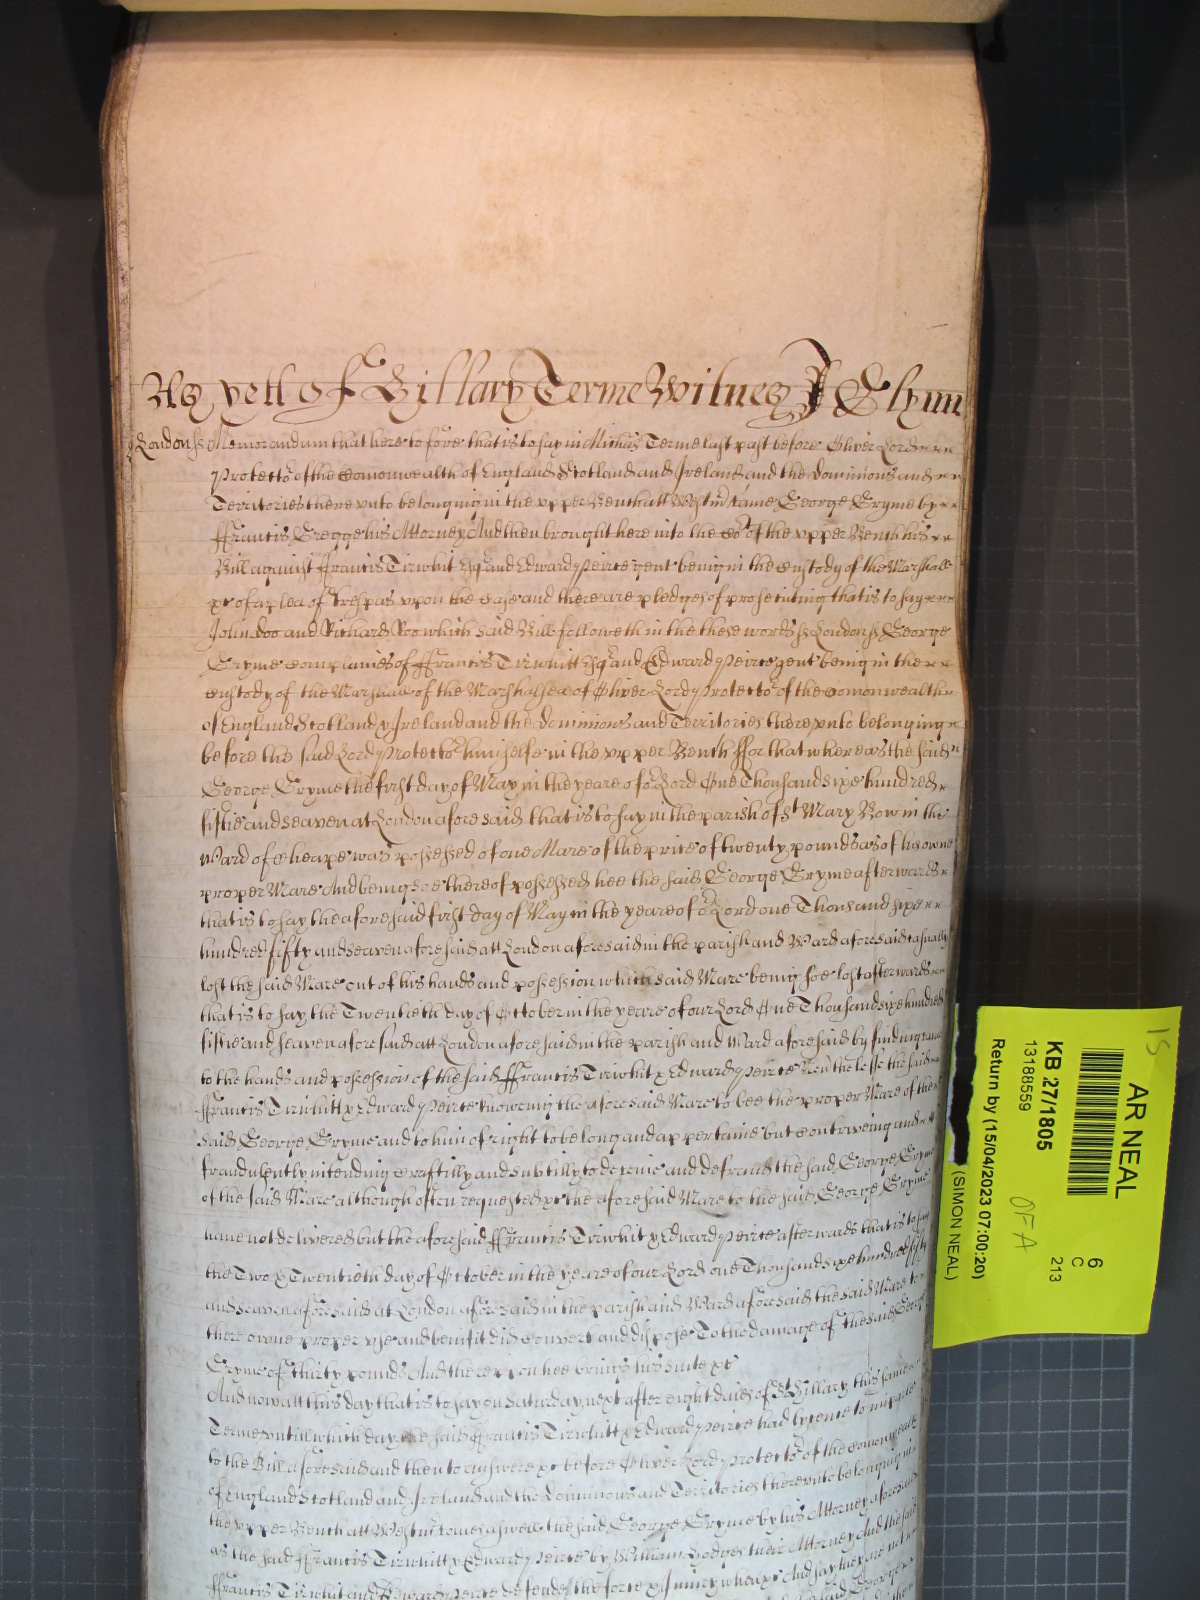 As yett of Hillary Terme Witnes J Glynn
London ss Memorandum that heretofore that is to say in Michas Terme last past before Oliver Lord
Protector of the Comonwealth of England Scotland and Ireland and the dominions and
Territories thereunto belonging in the upper Bench att Westm came George Gryme by
ffrancis Gregge his Attorney And then brought here into the Cort of the upper Bench his
Bill against ffrancis Tirwhit Esqr and Edward Peirce gent being in the Custody of the Marshall
&c of a plea of Trespas upon the Case and there are pledges of prosecuting that is to say
John Doo and Richard Roo which said Bill followeth in these words ss London ss George
Gryme complaines of ffrancis Tirwhitt Esqr and Edward Peirce gent being in the
Custody of the Marshall of the Marshalsea of Oliver Lord Protector of the Comonwealth
of England Scotland & Ireland and the dominions and Territories thereunto belonging
before the said Lord Protector himselfe in the upper Bench ffor that whereas the said
George Gryme the first day of May in the yeare of or Lord One Thousand sixe hundred
fiftie and seaven at London aforesaid that is to say in the parish of St Mary Bow in the
Ward of Cheape was possessed of one Mare of the price of twenty pounds as of his owne
proper Mare And being soe thereof possessed hee the said George Gryme afterwards
that is to say the aforesaid first day of May in the yeare of or Lord one Thousand sixe
hundred fifty and seaven aforesaid att London aforesaid in the parish and Ward aforesaid casually
lost the said Mare out of his hands and possession which said Mare being soe lost afterwards
that is to say the Twentieth day of October in the yeare of our Lord One Thousand sixe hundred
fiftie and seaven aforesaid att London aforesaid in the parish and Ward aforesaid by finding came
to the hands and possession of the said ffrancis Tirwhit & Edward Peirce Neverthelesse the said
ffrancis Tirwhitt & Edward Peirce knoweing the aforesaid Mare to bee the proper Mare of the
said George Gryme and to him of right to belong and appertaine but contriveing and
fraudulently intending craftilly and subtilly to deceive and defraud the said George Gryme
of the said Mare although often requested &c the aforesaid Mare to the said George Gryme
have not delivered but the aforesaid ffrancis Tirwhit & Edward Peirce afterwards that is to say
the Two & Twentieth day of October in the yeare of our Lord one Thousand sixe hundred fifty
and seaven aforesaid at London aforesaid in the parish and Ward aforesaid the said Mare to
there owne proper use and benifit did convert and dispose To the damage of the said George
Gryme of thirty pounds And thereupon hee brings his suite &c
And now att this day that is to say on Saturday next after eight daies of St Hillary this same
Terme untill which day the said ffrancis Tirwhitt & Edward Peirce had lycence to imparle
to the Bill aforesaid and then to answere &c before Oliver Lord Protector of the Comonwealth
of England Scotland and Ireland and the Dominions and Territories thereunto belonging in
the upper Bench att Westm comes aswell the said George Gryme by his Attorney aforesaid
as the said ffrancis Tirwhitt & Edward Peirce by William Hodges their Attorney And the said
ffrancis Tirwhit and Edward Peirce defende the force & Iniury when &c And say they are not
15
AR NEAL
6
C
213
KB 27/1805
13188559
OFA
Return by (15/04/2023 07:00:20)
(SIMON NEAL)